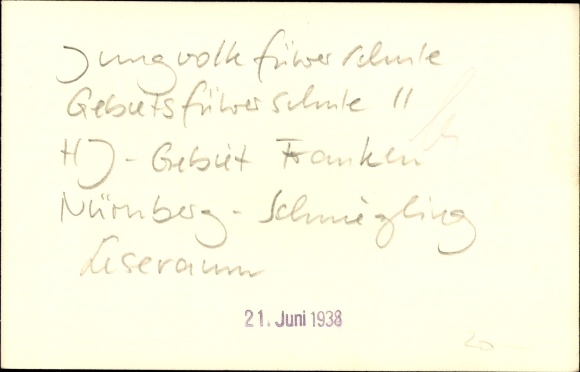 Jungvolkführerschule
Gebietsführerschule II
HJ - Gebiet Franken
Nürnberg - Schniegling
Leseraum
21. Juni 1938